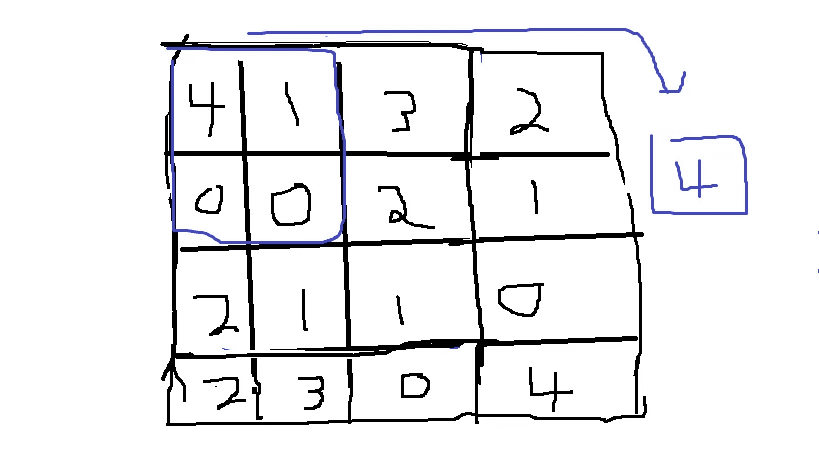 4 1 3 2
4
0 0 2 1
2 1 1 0
2 3 0 4